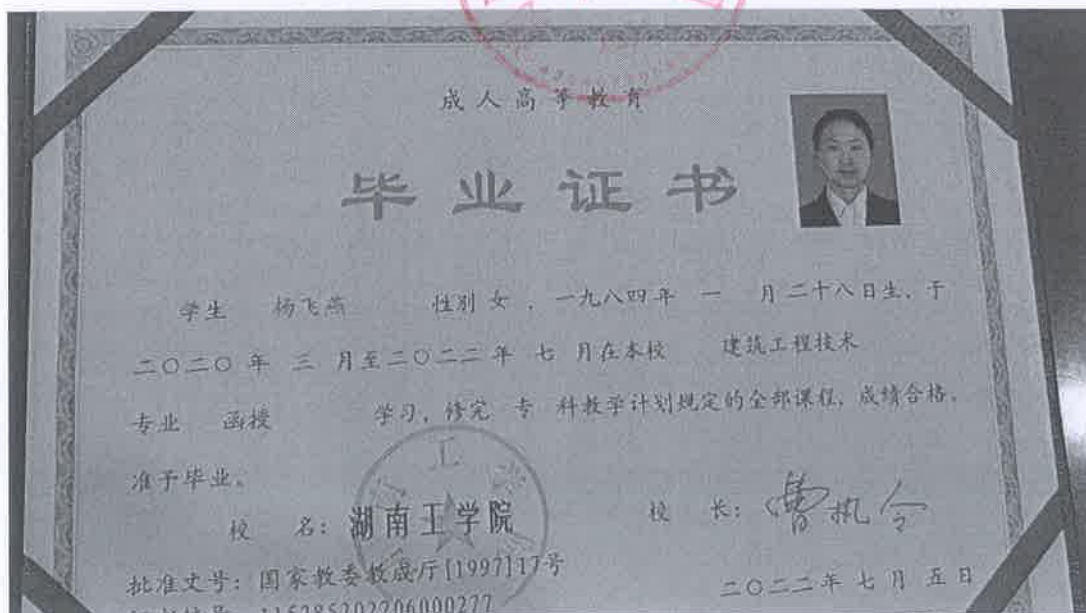 成人高等教育
毕业证书
学生 杨飞燕 性别 女 ，一九八四年 一 月二十八日生，于
二〇二〇年 三 月至二〇二二年 七 月在本校 建筑工程技术
专业 函授 学习，修完 专 科教学计划规定的全部课程，成绩合格，
准予毕业。
校 名：湖南工学院 校 长：曹执令
批准文号：国家教委教成厅[1997]17号
二〇二二年 七 月 五 日
115285202206000277